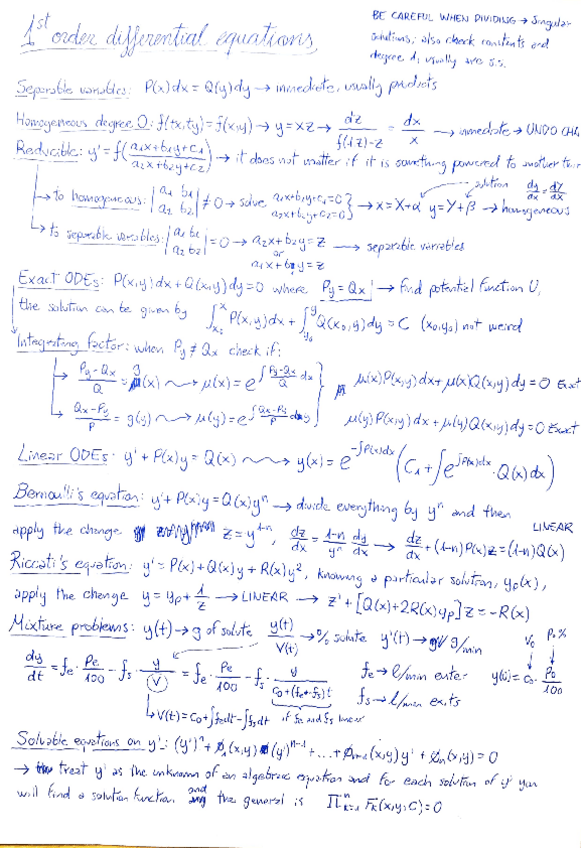 1st order differential equations
BE CAREFUL WHEN DIVIDING → Singular
solutions; also check constants and
degree 1, usually are s.s.
Separable variables: P(x)dx = Q(y)dy → immediate, usually products
Homogeneous degree 0: f(tx,ty)=f(x,y) → y=xz → dz/(f(1,z)-z) = dx/x → immediate → UNDO CHA
Reducible: y' = f((a₁x+b₁y+c₁)/(a₂x+b₂y+c₂)) → it does not matter if it is something powered to another thin
→ to homogeneous: |a₁ b₁ a₂ b₂| ≠ 0 → solve a₁x+b₁y+c₁=0 a₂x+b₂y+c₂=0} → x=X+α y=Y+β → homogeneous
solution dy/dx = dY/dX
→ to separable variables: |a₁ b₁ a₂ b₂| = 0 → a₂x+b₂y=z or a₁x+b₁y=z → separable variables
Exact ODEs: P(x,y)dx+Q(x,y)dy=0 where Py=Qx → find potential function U,
the solution can be given by ∫ₓ₀ˣ P(x,y)dx + ∫ᵧ₀ʸ Q(x₀,y)dy = C (x₀,y₀) not weird
Integrating factor: when Py ≠ Qx check if:
→ (Py-Qx)/Q = g(x) ⟿ μ(x) = e^∫(Py-Qx)/Q dx μ(x)P(x,y)dx+μ(x)Q(x,y)dy = 0 Exact
→ (Qx-Py)/P = g(y) ⟿ μ(y) = e^∫(Qx-Py)/P dy μ(y)P(x,y)dx+μ(y)Q(x,y)dy = 0 Exact
Linear ODEs: y' + P(x)y = Q(x) ⟿ y(x) = e^-∫P(x)dx (C₁ + ∫e^∫P(x)dx · Q(x)dx)
Bernoulli's equation: y' + P(x)y = Q(x)yⁿ → divide everything by yⁿ and then
apply the change z = y¹⁻ⁿ, dz/dx = (1-n)/yⁿ dy/dx → dz/dx + (1-n)P(x)z = (1-n)Q(x) LINEAR
Riccati's equation: y' = P(x)+Q(x)y+R(x)y², knowing a particular solution, yp(x),
apply the change y = yp + 1/z → LINEAR → z' + [Q(x)+2R(x)yp]z = -R(x)
Mixture problems: y(t) → g of solute y(t)/V(t) → % solute y'(t) → g/min V₀ P₀%
dy/dt = fe · Pe/100 - fs · y/V = fe · Pe/100 - fs · y/(C₀+(fe-fs)t) fe → l/min enter y(0) = C₀ · P₀/100
fs → l/min exits
→ V(t) = C₀ + ∫fedt - ∫fsdt if fe and fs linear
Solvable equations on y': (y')ⁿ + ϕ₁(x,y)(y')ⁿ⁻¹ + ... + ϕₙ₋₁(x,y)y' + ϕₙ(x,y) = 0
→ treat y' as the unknown of an algebraic equation and for each solution of y' you
will find a solution function and the general is ∏ₖ₌₁ⁿ Fₖ(x,y,C) = 0